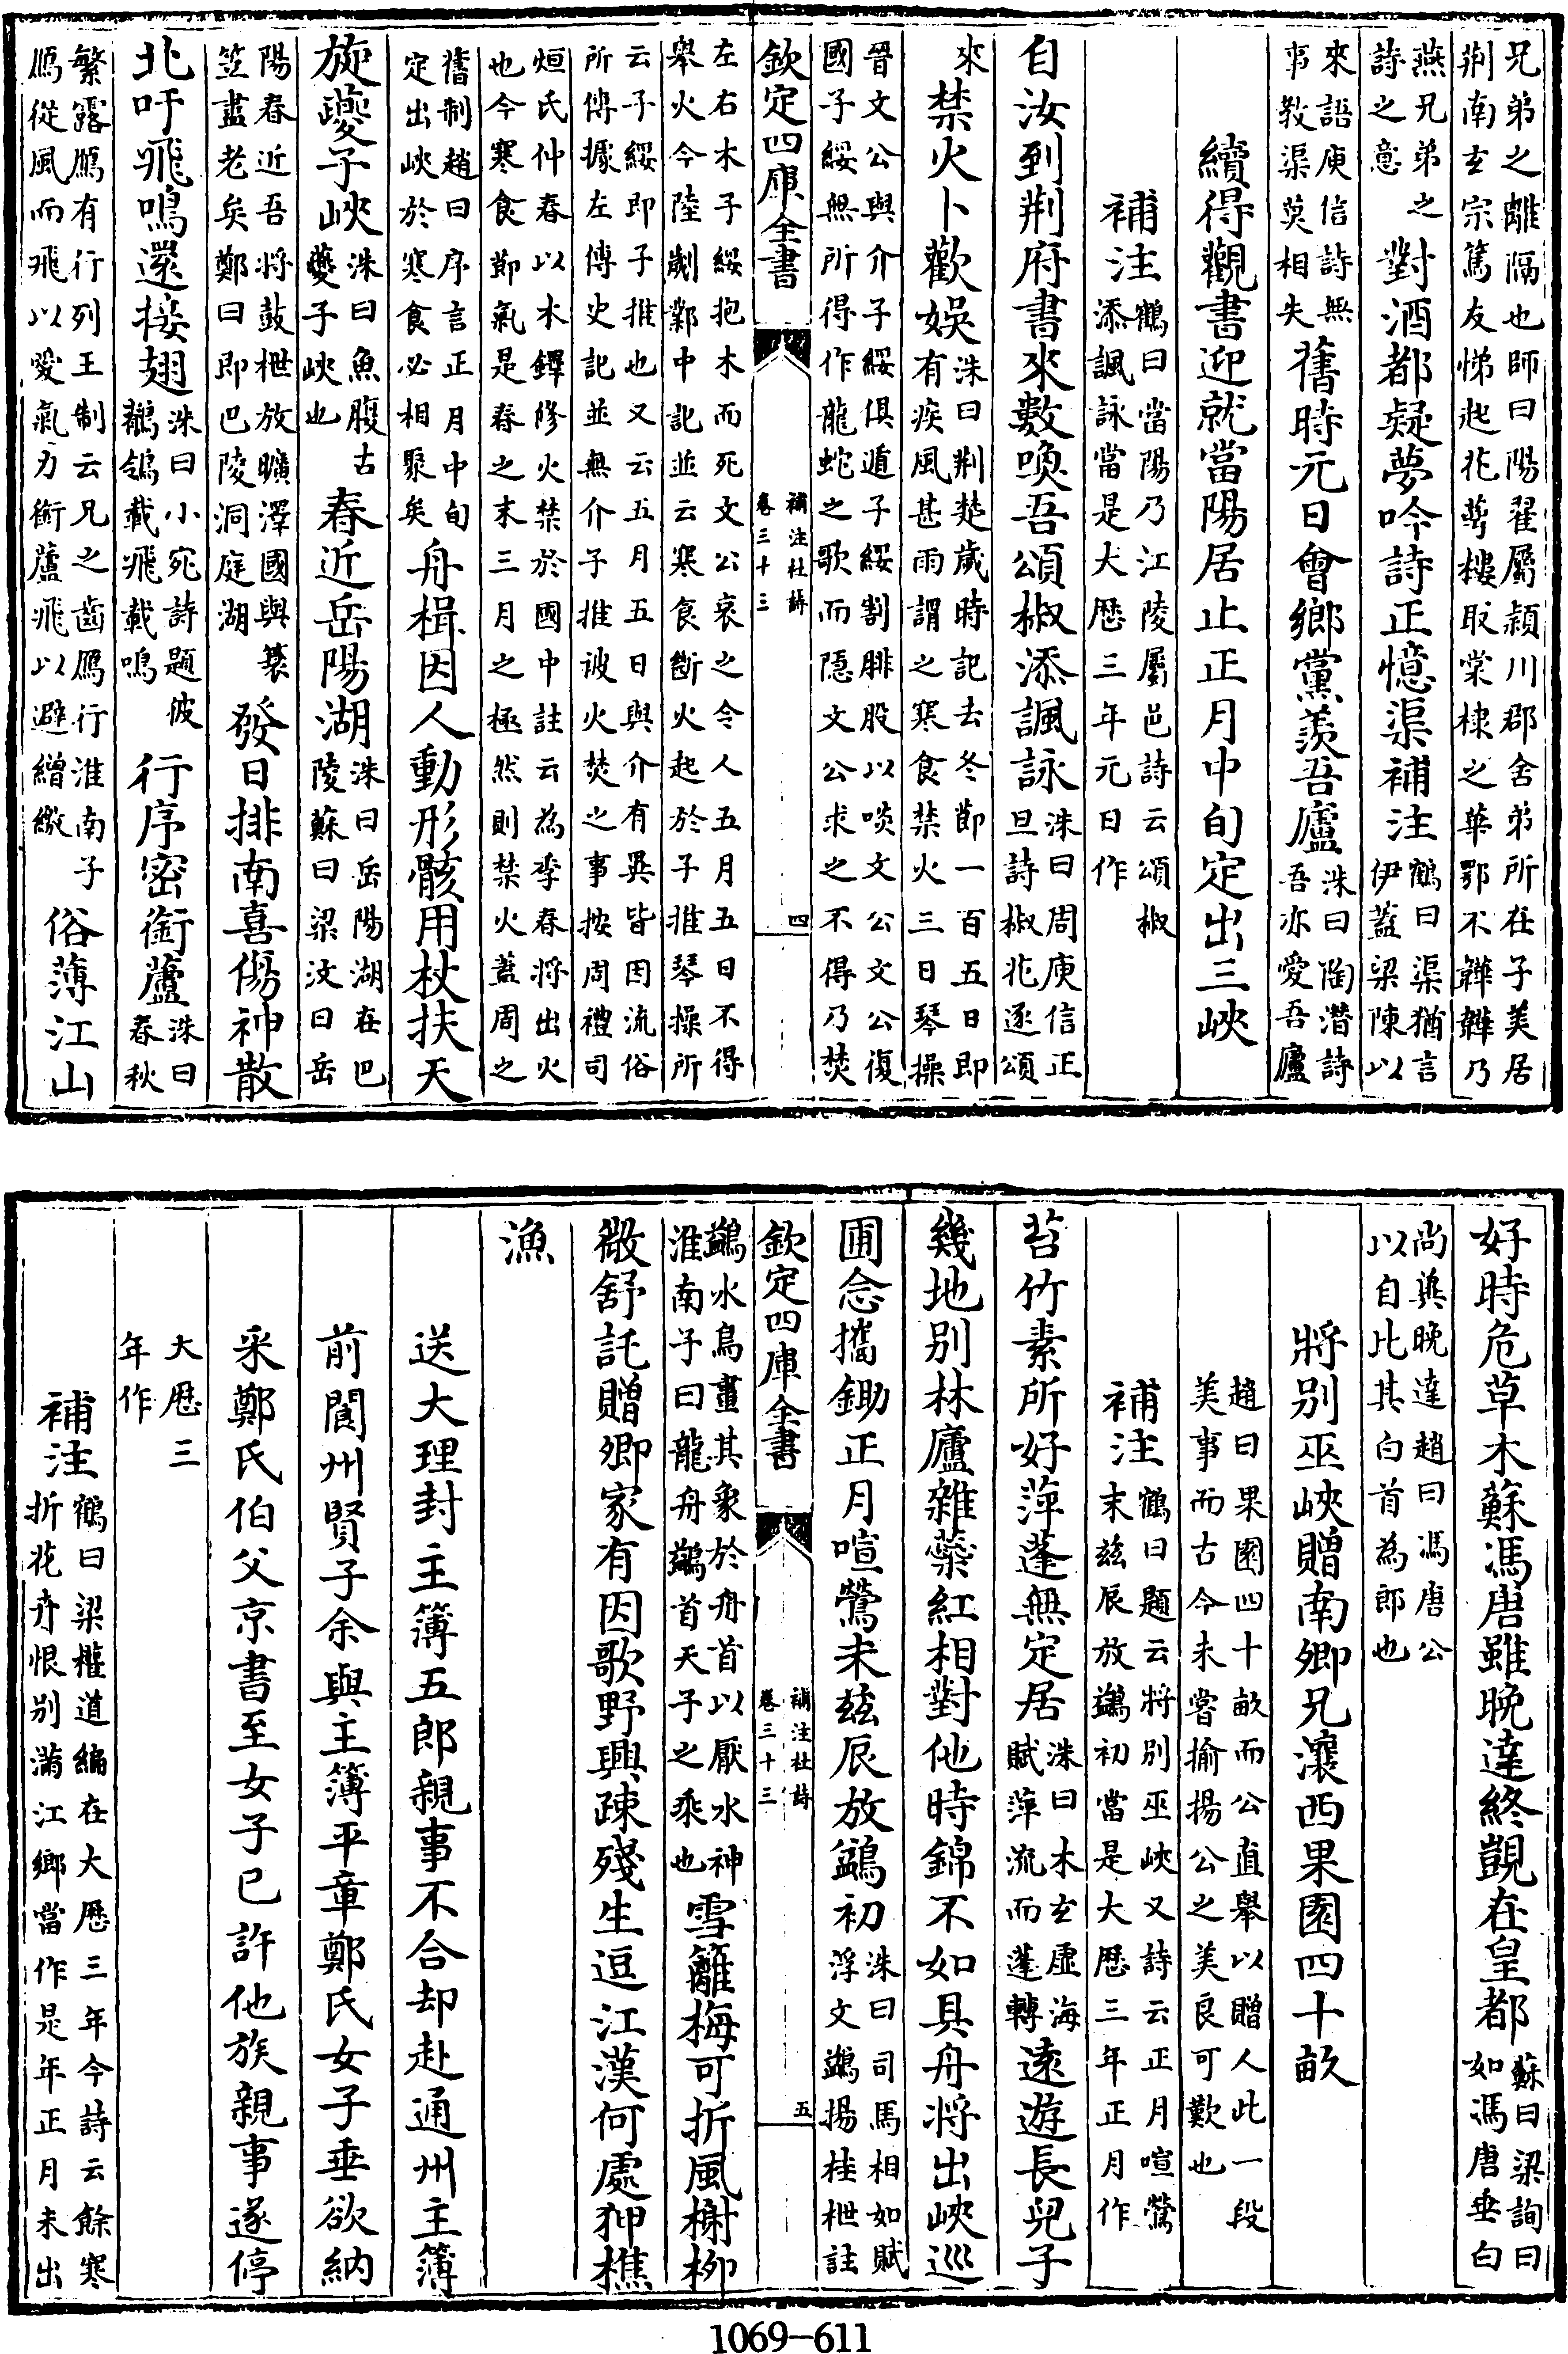 兄弟之離隔也師曰陽翟屬潁川郡舍弟所在子美居
荆南玄宗篤友悌起花萼樓取棠棣之華鄂不韡韡乃
燕兄弟之詩之意對酒都疑夢吟詩正憶渠補注鶴曰渠猶言伊蓋梁陳以
來語庾信詩無事教渠莫相失舊時元日會鄉黨羨吾廬洙曰陶潛詩吾亦愛吾廬
續得觀書迎就當陽居止正月中旬定出三峽
補注鶴曰當陽乃江陵屬邑詩云頌椒添諷詠當是大歷三年元日作
自汝到荆府書來數喚吾頌椒添諷詠洙曰周庾信正旦詩椒花逐頌
來禁火卜歡娛洙曰荆楚歲時記去冬節一百五日即有疾風甚雨謂之寒食禁火三日琴操
晉文公與介子綏俱遁子綏割腓股以啖文公文公復
國子綏無所得作龍蛇之歌而隱文公求之不得乃焚
欽定四庫全書 補注杜詩 卷三十三 四
左右木子綏抱木而死文公哀之令人五月五日不得
舉火今陸翽鄴中記並云寒食斷火起於子推琴操所
云子綏即子推也又云五月五日與介有異皆因流俗
所傳據左傳史記並無介子推被火焚之事按周禮司
烜氏仲春以木鐸修火禁於國中註云為季春將出火
也今寒食節氣是春之末三月之極然則禁火蓋周之
舊制趙曰序言正月中旬定出峽於寒食必相聚矣舟楫因人動形骸用杖扶天
旋夔子峽洙曰魚腹古夔子峽也春近岳陽湖洙曰岳陽湖在巴陵蘇曰梁汶曰岳
陽春近吾將鼓枻放曠澤國與蓑笠盡老矣鄭曰即巴陵洞庭湖發日排南喜傷神散
北吁飛鳴還接翅洙曰小宛詩題彼鶺鴒載飛載鳴行序密銜蘆洙曰春秋
繁露鴈有行列王制云兄之齒鴈行淮南子鴈從風而飛以愛氣力銜蘆飛以避繒繳俗薄江山
好時危草木蘇馮唐雖晚達終覬在皇都蘇曰梁詢曰如馮唐垂白
尚冀晚達趙曰馮唐公以自比其白首為郎也
將别巫峽贈南卿兄瀼西果園四十畝
趙曰果園四十畝而公直舉以贈人此一段
美事而古今未嘗揄揚公之美良可歎也
補注鶴曰題云將别巫峽又詩云正月喧鶯末兹辰放鷁初當是大歷三年正月作
苔竹素所好萍蓬無定居洙曰木玄虛海賦萍流而蓬轉遠遊長兒子
幾地别林廬雜蘂紅相對他時錦不如具舟將出峽巡
圃念攜鋤正月喧鶯末兹辰放鷁初洙曰司馬相如賦浮文鷁揚桂枻註
欽定四庫全書 補注杜詩 卷三十三 五
鷁水鳥畫其象於舟首以厭水神淮南子曰龍舟鷁首天子之乘也雪籬梅可折風榭柳
微舒託贈卿家有因歌野興疎殘生逗江漢何處狎樵
漁
送大理封主簿五郎親事不合却赴通州主簿
前閬州賢子余與主簿平章鄭氏女子垂欲納
采鄭氏伯父京書至女子已許他族親事遂停
大歷三年作
補注鶴曰梁權道編在大歷三年今詩云餘寒折花卉恨别滿江鄉當作是年正月未出
1069-611